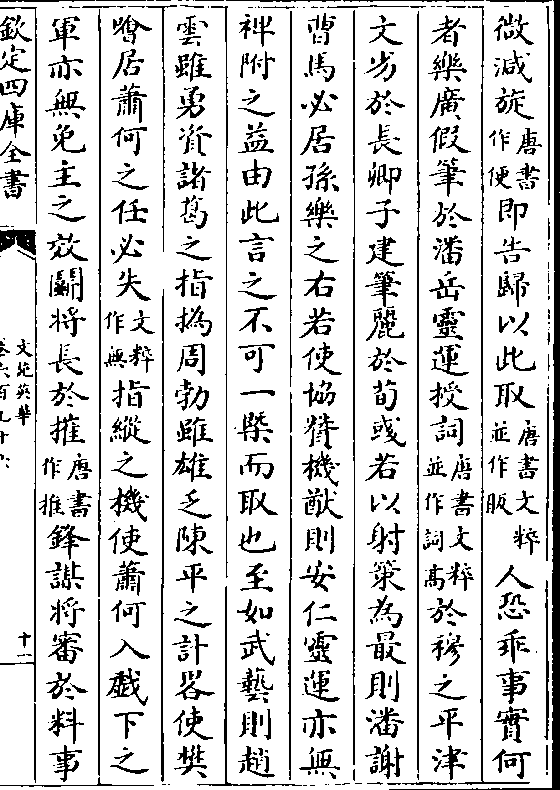 微減旋唐書作便即告歸以此取唐書文粹並作服人恐乖事實何
者樂廣假筆於潘岳靈運授詞唐書文粹並作詞高於穆之平津
文劣於長卿子建筆麗於荀彧若以射策為最則潘謝
曹馬必居孫樂之右若使協賛機猷則安仁靈運亦無
裨附之益由此言之不可一槩而取也至如武藝則趙
雲雖勇資諸葛之指撝周勃雖雄乏陳平之計畧使樊
噲居蕭何之任必失文粹作無指縱之機使蕭何入戲下之
軍亦無免主之效鬭將長於摧唐書作推鋒謀將審於料事
欽定四庫全書
文苑英華
卷六百九十六
十二